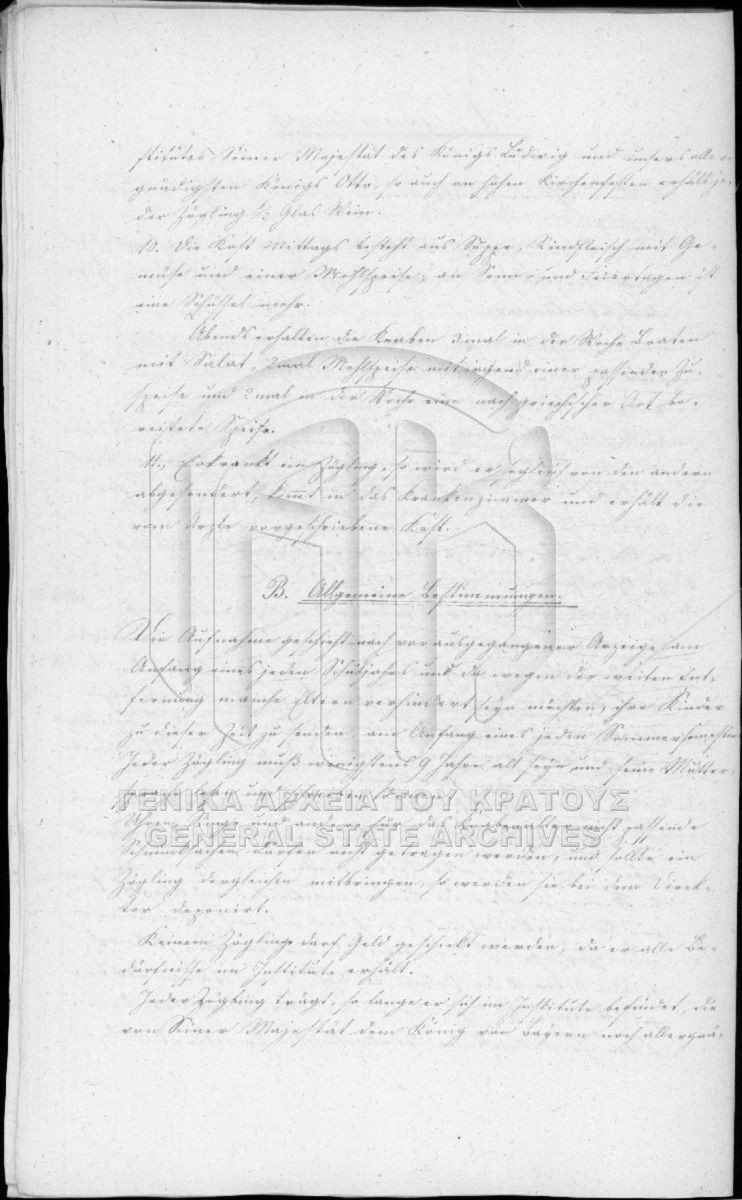 stitutes Seiner Majestät des Königs Ludwig und unsers aller-
gnädigsten Königs Otto, so auch an hohen Kirchenfesten erhält je-
der Zögling ½ Glas Wein.
10. Die Kost Mittags besteht aus Suppe, Rindfleisch mit Ge-
müse und einer Mehlspeise; an Sonn- und Feiertagen ist
eine Schüssel mehr.
Abends erhalten die Knaben 3mal in der Woche Braten
mit Salat, 2mal Mehlspeise mit irgend einer passenden Zu-
speise und 2mal in der Woche eine nach griechischer Art be-
reitete Speise.
11. Erkrankt ein Zögling, so wird er sogleich von den andern
abgesondert, kommt in das Krankenzimmer und erhält die
vom Arzte vorgeschriebene Kost.
B. Allgemeine Bestimmungen.
Die Aufnahme geschieht nach vorausgegangener Anzeige am
Anfang eines jeden Schuljahres und da wegen der weiten Ent-
fernung manche Eltern verhindert seyn möchten, ihre Kinder
zu dieser Zeit zu senden, am Anfang eines jeden Sommersemesters.
Jeder Zögling muß wenigstens 9 Jahre alt seyn und seine Mutter-
sprache lesen und schreiben können.
ΓΕΝΙΚΑ ΑΡΧΕΙΑ ΤΟΥ ΚΡΑΤΟΥΣ
Uhren, Ringe und andere für das Knabenalter nicht passende
GENERAL STATE ARCHIVES
Schmucksachen dürfen nicht getragen werden, und sollte ein
Zögling dergleichen mitbringen, so werden sie bei dem Direk-
tor deponirt.
Keinem Zöglinge darf Geld geschickt werden, da er alle Be-
dürfnisse im Institute erhält.
Jeder Zögling trägt, so lange er sich im Institute befindet, die
von Seiner Majestät dem König von Bayern noch allergnä-